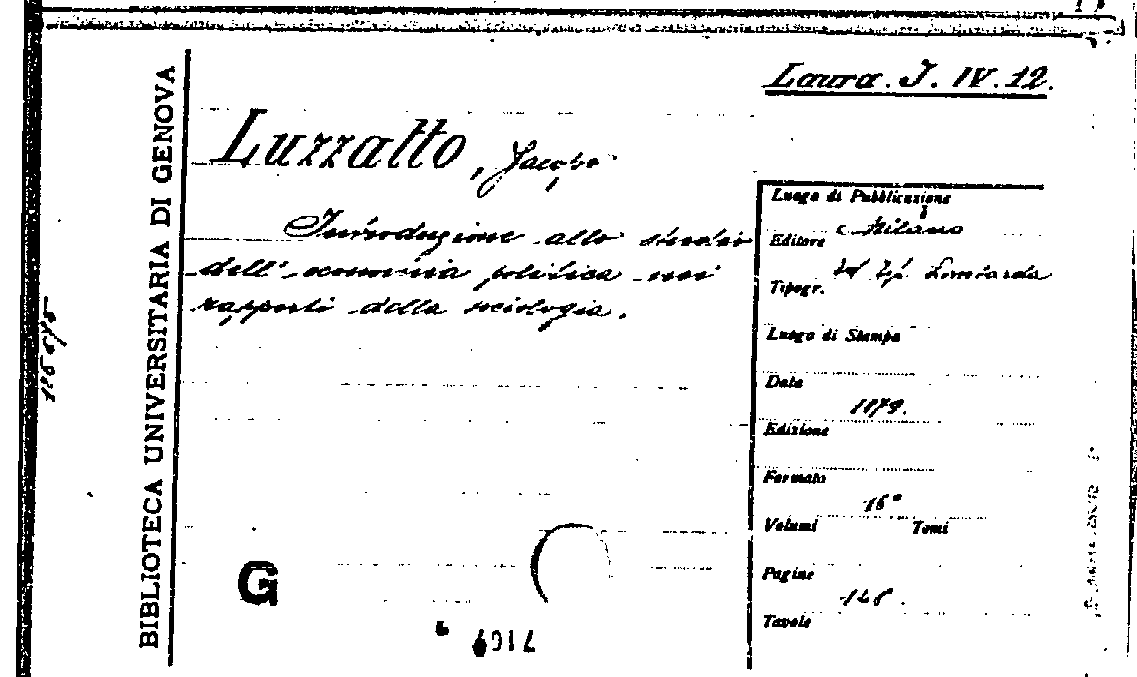 Laura. J. IV. 12.
Luzzatto, Jacopo
Introduzione allo studio
dell'economia politica nei
rapporti della sociologia.
BIBLIOTECA UNIVERSITARIA DI GENOVA
Luogo di Pubblicazione
Milano
Editore
Tip. Lombarda
Tipogr.
Luogo di Stampa
Data
1879.
Edizione
Formato
16°
Volumi Tomi
Pagine
Tavole
G